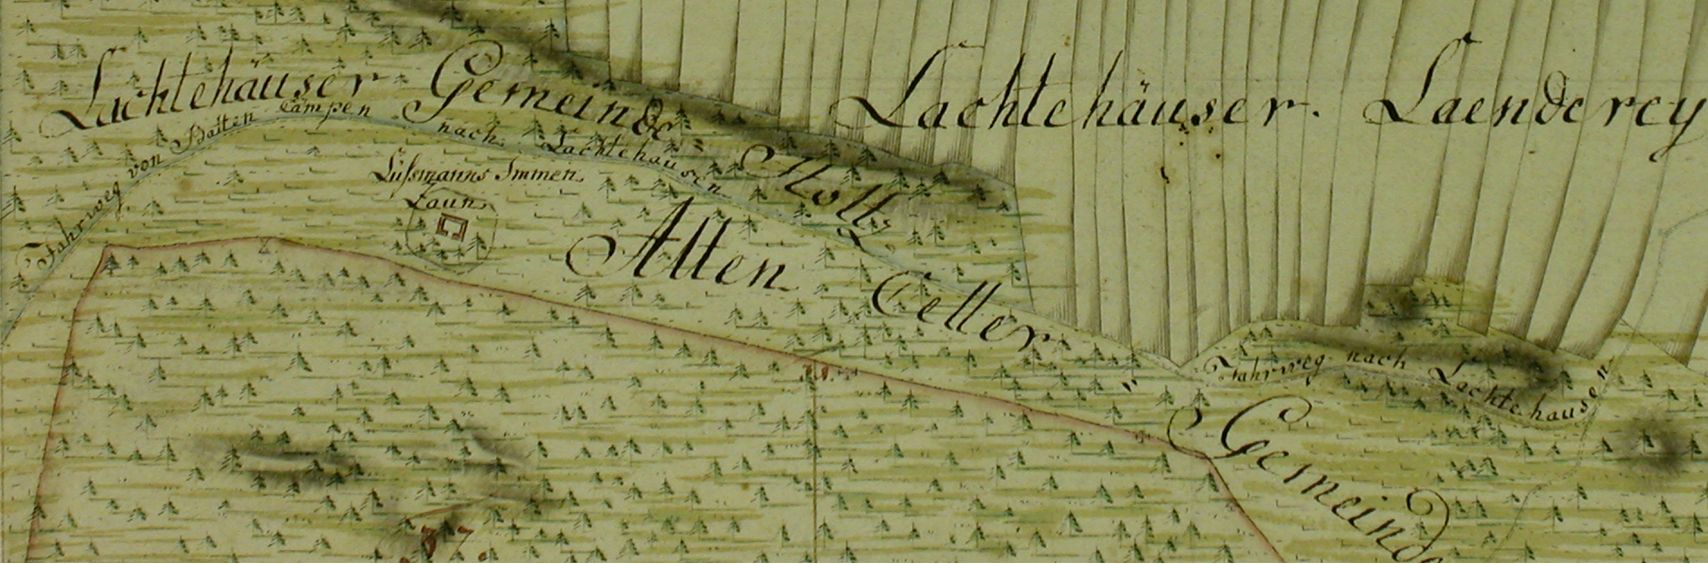 Lachtehäuser Gemeinde Holtz
Lachtehäuser. Laenderey
Fahrweg von Batten Campen nach Lachtehausen
Lüßmanns Immen
Zaun.
Alten Celler Gemeinde
Fahrweg nach Lachtehausen
37.